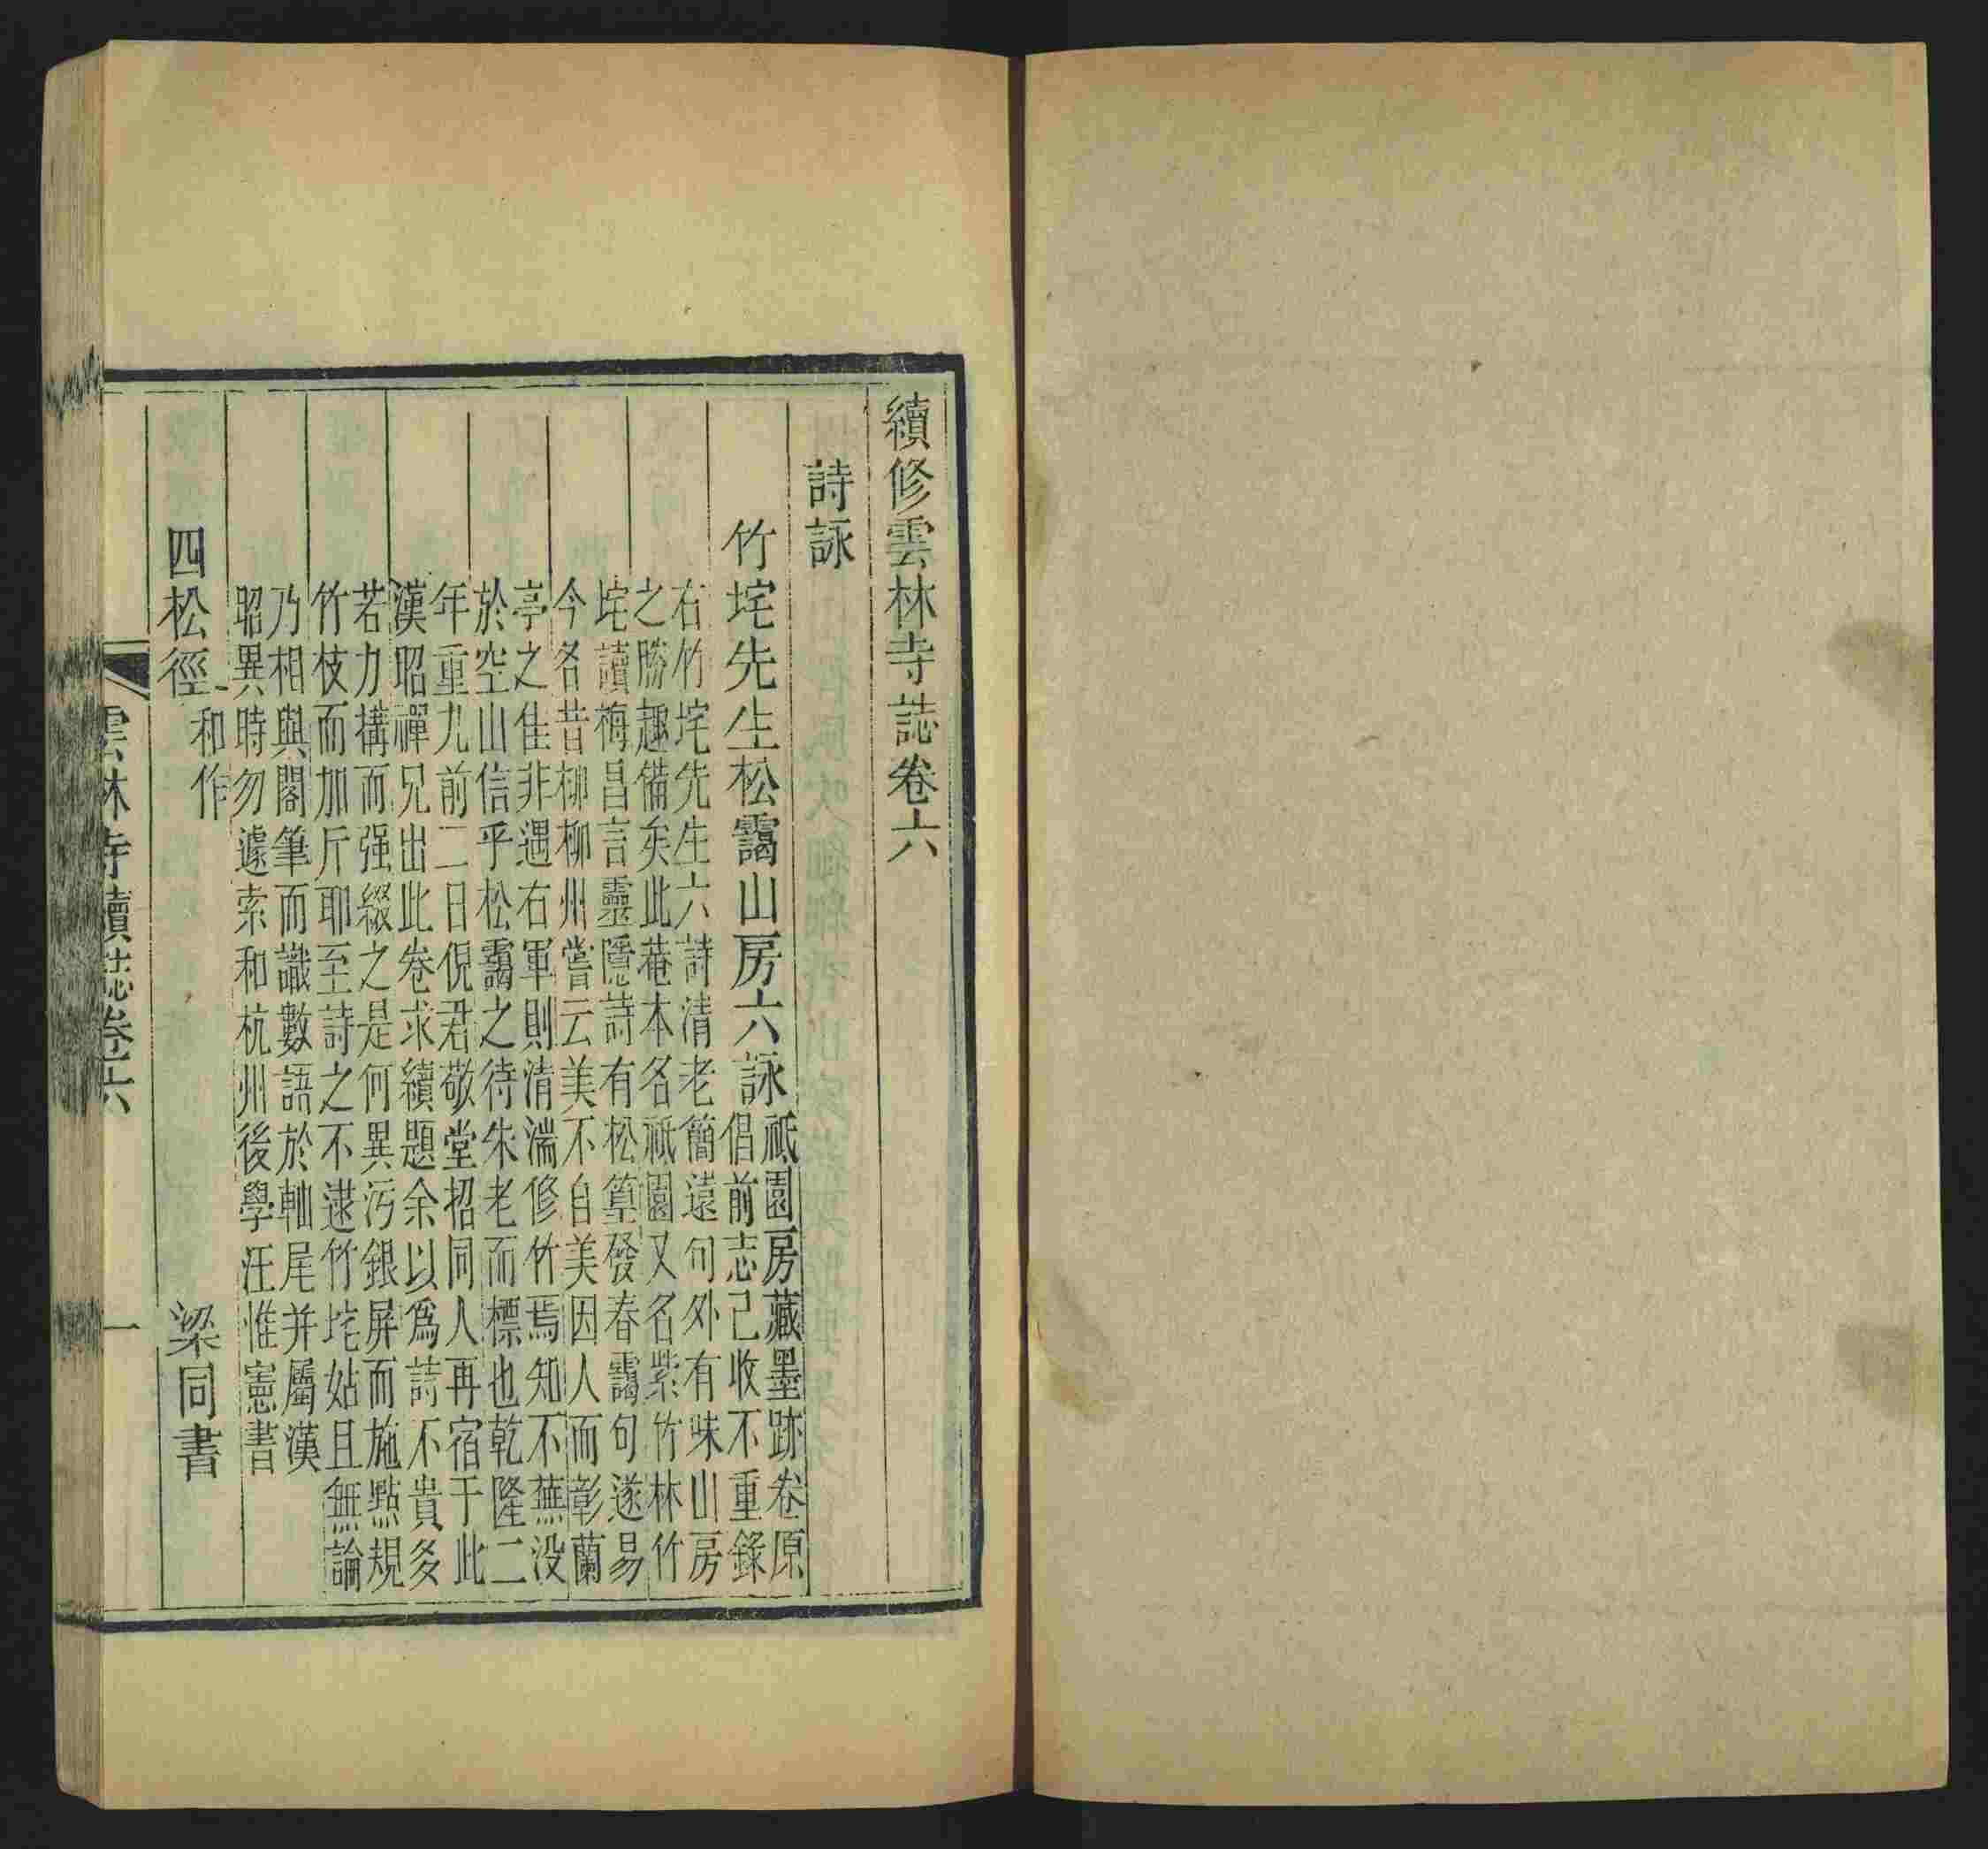 續修雲林寺誌卷六
詩詠
竹垞先生松靄山房六詠
祇園房藏墨跡卷原
倡前志已收不重錄
右竹垞先生六詩清老簡遠句外有味山房
之勝趣備矣此菴本名祇園又名紫竹林竹
垞讀梅昌言靈隱詩有松篁發春靄句遂易
今名昔柳柳州嘗云美不自美因人而彰蘭
亭之佳非遇右軍則清湍修竹焉知不蕪没
於空山信乎松靄之待朱老而標也乾隆二
年重九前二日倪君敬堂招同人再宿于此
漢昭禪兄出此卷求續題余以爲詩不貴多
若力搆而强綴之是何異污銀屏而施點規
竹枝而加斤耶至詩之不逮竹垞姑且無論
乃相與閣筆而識數語於軸尾并屬漢
昭異時勿遽索和杭州後學汪惟憲書
四松徑
一和作
梁同書
雲林寺續誌卷六
一